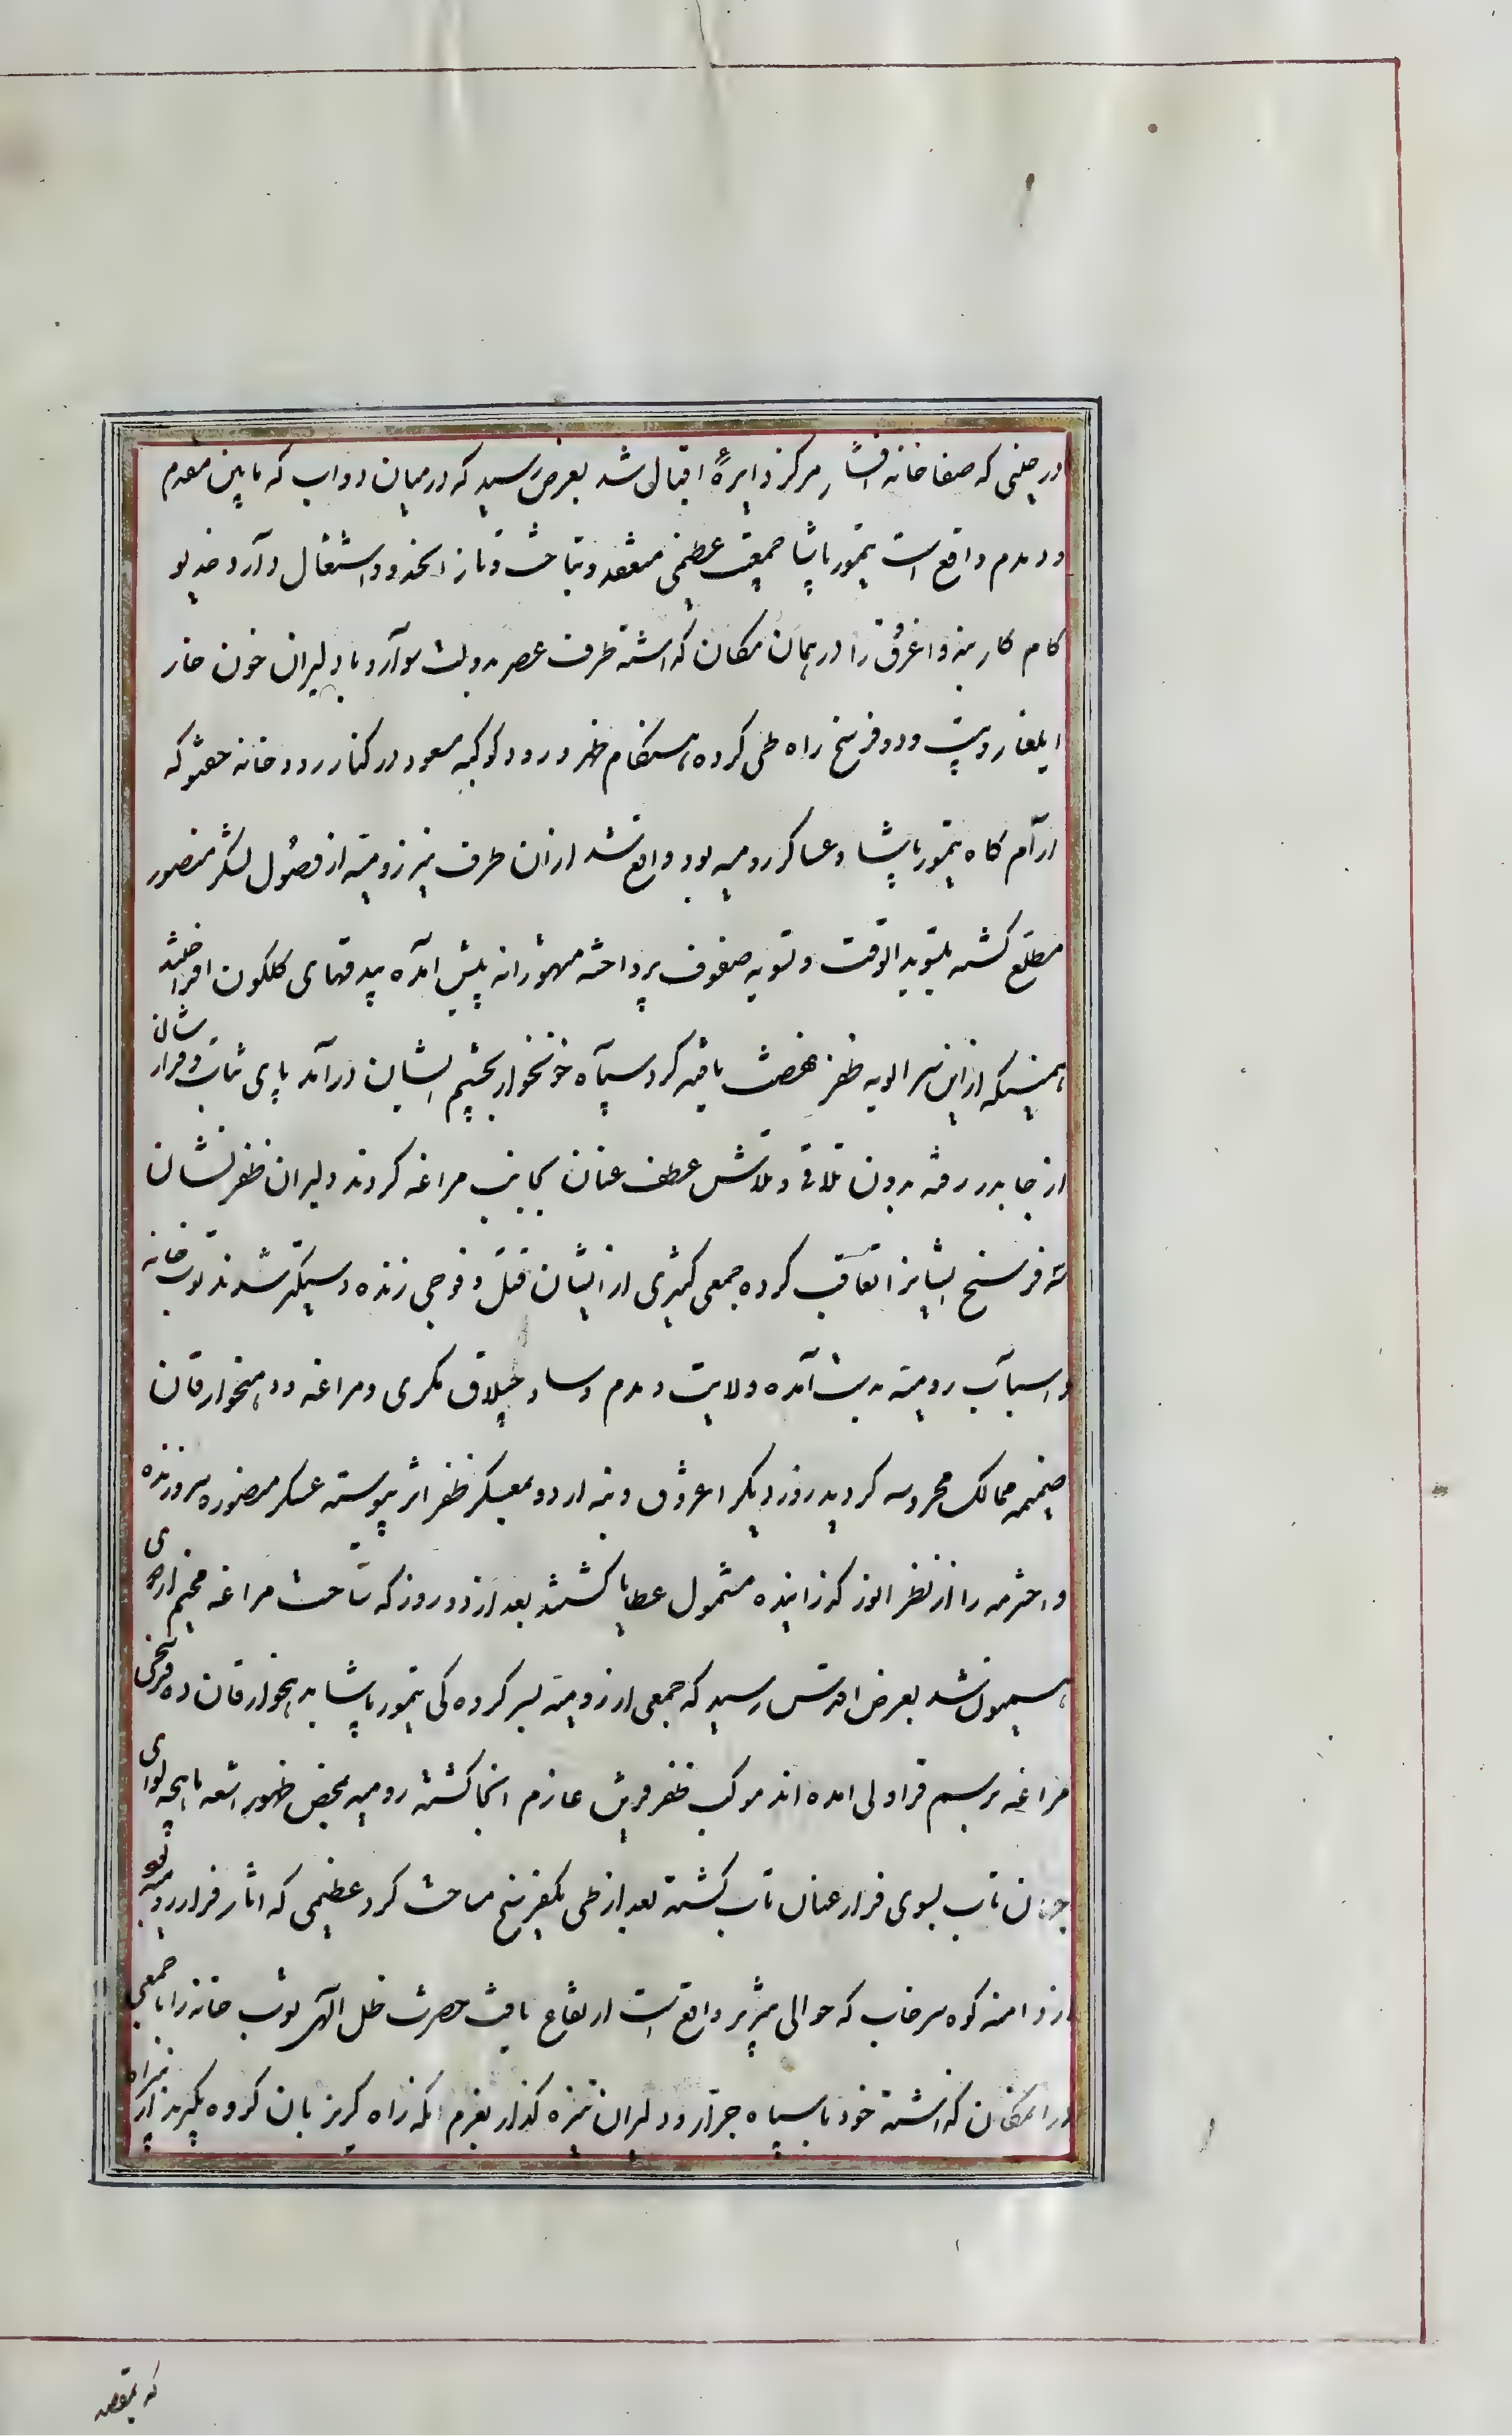 در حینی که صفاخانه افشار مرکز دایرهٔ اقبال شد بعرض رسید که در میان دواب که مابین مقدم
و دمدم واقع است تیمور پاشا جمعیت عظیمی منعقد و بتاخت و تاز انحدود اشتغال دارد خدیو
کام کار بنه و اغرق را در همان مکان گذاشته طرف عصر بدولت سوار و با دلیران خون خار
ایلغار و بیست و دو فرسخ راه طی کرده هنکام ظهر ورود کوکبه مسعود در کنار رودخانه جغتو که
ارآم کاه تیمور پاشا و عساکر رومیه بود واقع شد از ان طرف نیز رومیه از وصول لشکر منصور
مطلع کشته و تسویه صفوف پرداخته متهورانه پیش آمده بیدقهای کلکون افراختند
همینکه از این سر الویه ظفر نهضت یافته کرد سپاه خونخوار بچشم ایشان درآمد پای ثبات و قرارشان
از جا بدر رفته بدون تلاقی و تلاش عطف عنان بجانب مراغه کردند دلیران ظفر نشان
سه فرسخ ایشانرا تعاقب کرده جمعی کثیری از ایشان قتل و فوجی زنده دستیکر شدند توب خانه
و اسباب رومیه بدست آمده ولایت دمدم و ساوجبلاق مکری و مراغه و دهخوارقان
ضمیمه ممالک محروسه کردید روز دیکر اغروق و بنه اردو بمعسکر ظفر اثر پیوسته عسکر منصوره سر و زنده
و اخترمه را از نظر انور گذرانیده مشمول عطایا کشتند بعد از دو روز که ساحت مراغه مخیم اردوی
همیون شد بعرض اقدس رسید که جمعی از رومیه بسرکرده کی تیمور پاشا بدهخوارقان ده فرسخی
مراغه برسم قراولی امده اند موکب ظفر قرین عازم انجا کشته رومیه بمحض ظهور اشعه ماهچه لوای
جهان تاب بسوی فرار عنان تاب کشته بعد از طی یکفرسخ مساحت کرد عظیمی که اثار فرار رومیه بود
از دامنه کوه سرخاب که حوالی تبریز واقع است ارتفاع یافت حضرت ظل الهی توب خانه را با جمعی
در انمکان گذاشته خود با سپاه جرار و دلیران نیزه گذار بعزم انکه راه کریز بان کروه پکیرند از راه
که بقصد